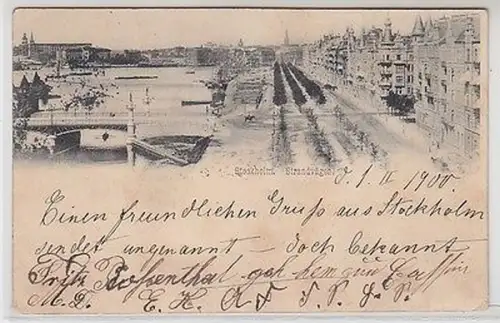 Stockholm. Strandvägen.
d. 1. II 1900.
Einen freundlichen Gruß aus Stockholm
sendet ungenannt – doch bekannt
Fritz Rosenthal
M. D. E. H.